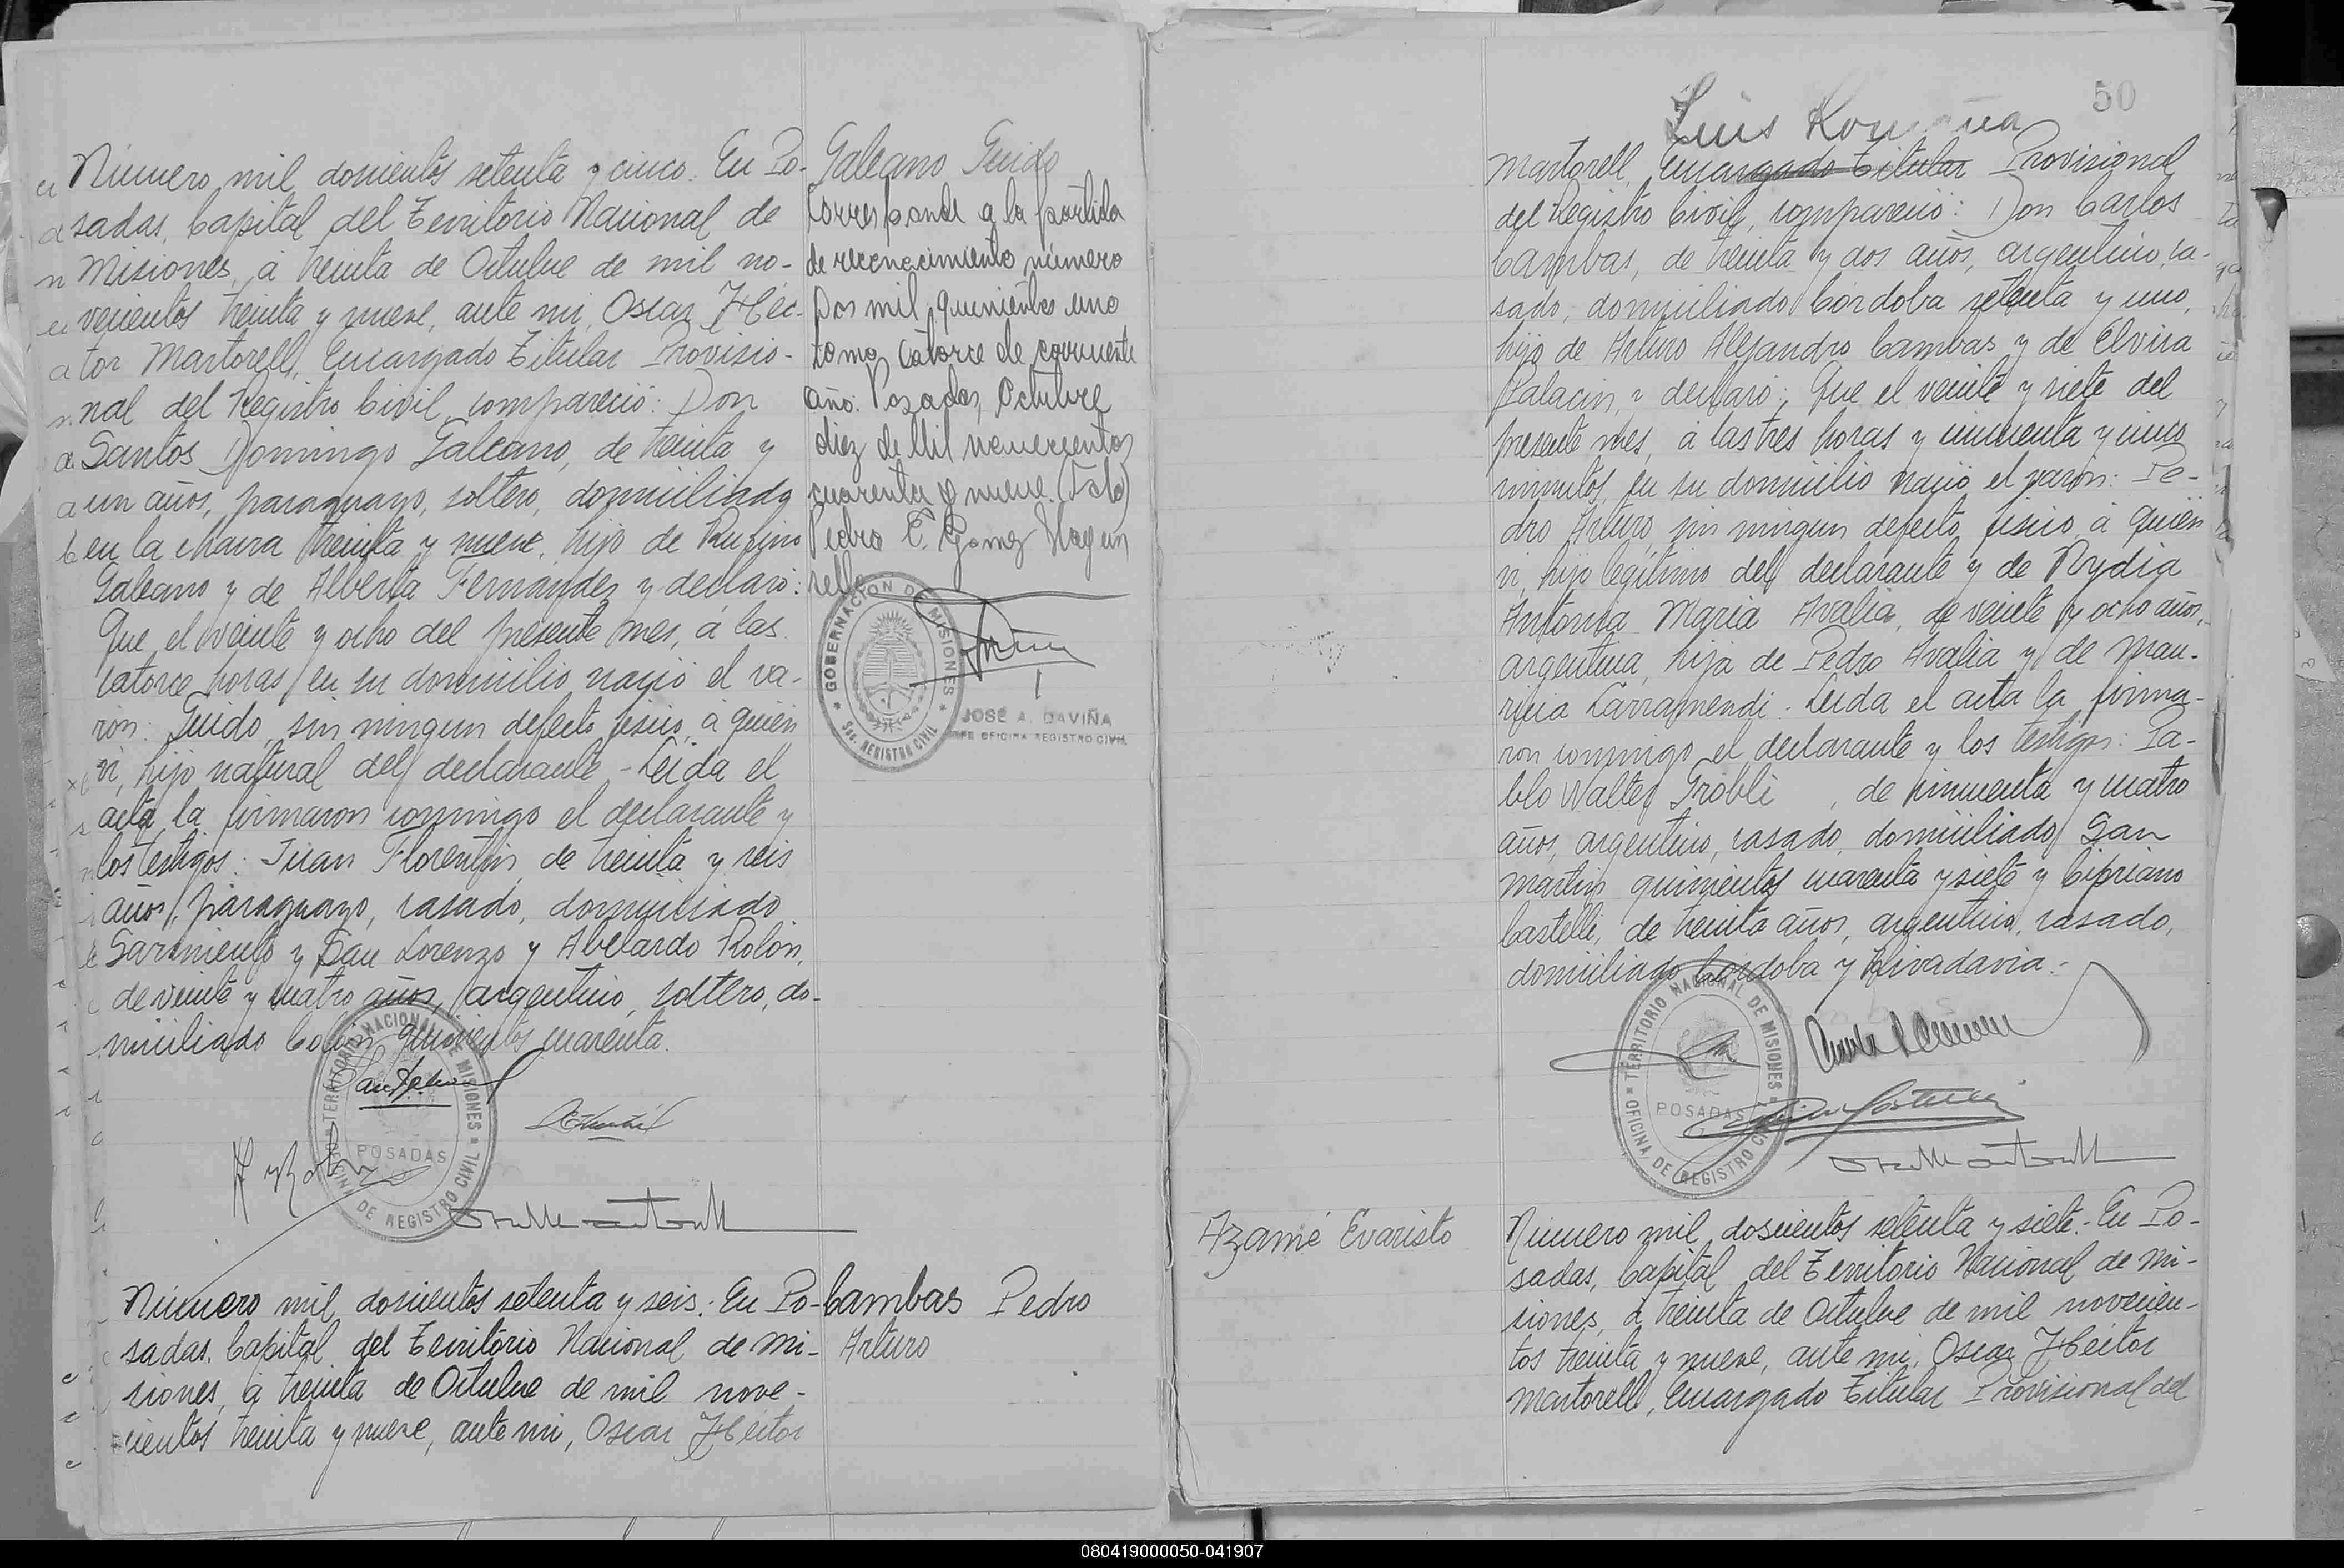 Número mil doscientos setenta y cinco. En Po-
sadas, Capital del Territorio Nacional de
Misiones, á treinta de Octubre de mil no-
vecientos treinta y nueve, ante mi, Oscar Héc-
tor Martorell, Encargado Titular Provisio-
nal del Registro Civil, compareció: Don
Santos Domingo Galeano, de treinta y
un años, paraguayo, soltero, domiciliado
en la chacra treinta y nueve, hijo de Rufino
Galeano y de Alberta Fernández y declaró:
Que el veinte y ocho del presente mes, á las
catorce horas, en su domicilio nació el va-
rón: Guido, sin ningun defecto fisico, á quien
vi, hijo natural del declarante.- Leida el
acta la firmaron conmigo el declarante y
los testigos: Juan Florentin, de treinta y seis
años, paraguayo, casado, domiciliado
Sarmiento y San Lorenzo y Abelardo Rolón,
de veinte y cuatro años, argentino, soltero, do-
miciliado Colón quinientos cuarenta.
TERRITORIO NACIONAL DE MISIONES
POSADAS
OFICINA DE REGISTRO CIVIL
A Rolón
Galeano Guido
Corresponde a la partida
de reconocimiento número
Dos mil quinientos uno
tomo catorce de corriente
año. Posadas, Octubre
diez de Mil novecientos
cuarenta y nueve. (Fdo)
Pedro E. Gomez Hay un
sello
GOBERNACION DE MISIONES
Sec. REGISTRO CIVIL
JOSE A. DAVIÑA
JEFE OFICINA REGISTRO CIVIL
Número mil doscientos setenta y seis: En Po-
sadas, Capital del Territorio Nacional de Mi-
siones, á treinta de Octubre de mil nove-
cientos treinta y nueve, ante mi, Oscar Héctor
Cambas Pedro
Arturo
50
Luis
Martorell, Encargado Titular Provisional
del Registro Civil, compareció: Don Carlos
Cambas, de treinta y dos años, argentino, ca-
sado, domiciliado Córdoba setenta y uno,
hijo de Arturo Alejandro Cambas y de Elvira
Palacin, y declaró: Que el veinte y siete del
presente mes, á las tres horas y cincuenta y cinco
minutos, en su domicilio nació el varon: Pe-
dro Arturo, sin ningun defecto fisico, á quien
vi, hijo legitimo del declarante y de Nydia
Antonia Maria Avalia, de veinte y ocho años,
argentina, hija de Pedro Avalia y de Mau-
ricia Larramendi. Leida el acta la firma-
ron conmigo el declarante y los testigos: Pa-
blo Walter Grobli, de cincuenta y cuatro
años, argentino, casado, domiciliado San
Martin quinientos cuarenta y siete y Cipriano
Castelli, de treinta años, argentino, casado,
domiciliado Córdoba y Rivadavia.-
TERRITORIO NACIONAL DE MISIONES
POSADAS
OFICINA DE REGISTRO CIVIL
Azamé Evaristo
Número mil doscientos setenta y siete.- En Po-
sadas, Capital del Territorio Nacional de Mi-
siones, á treinta de Octubre de mil novecien-
tos treinta y nueve, ante mi, Oscar Héctor
Martorell, Encargado Titular Provisional del
080419000050-041907